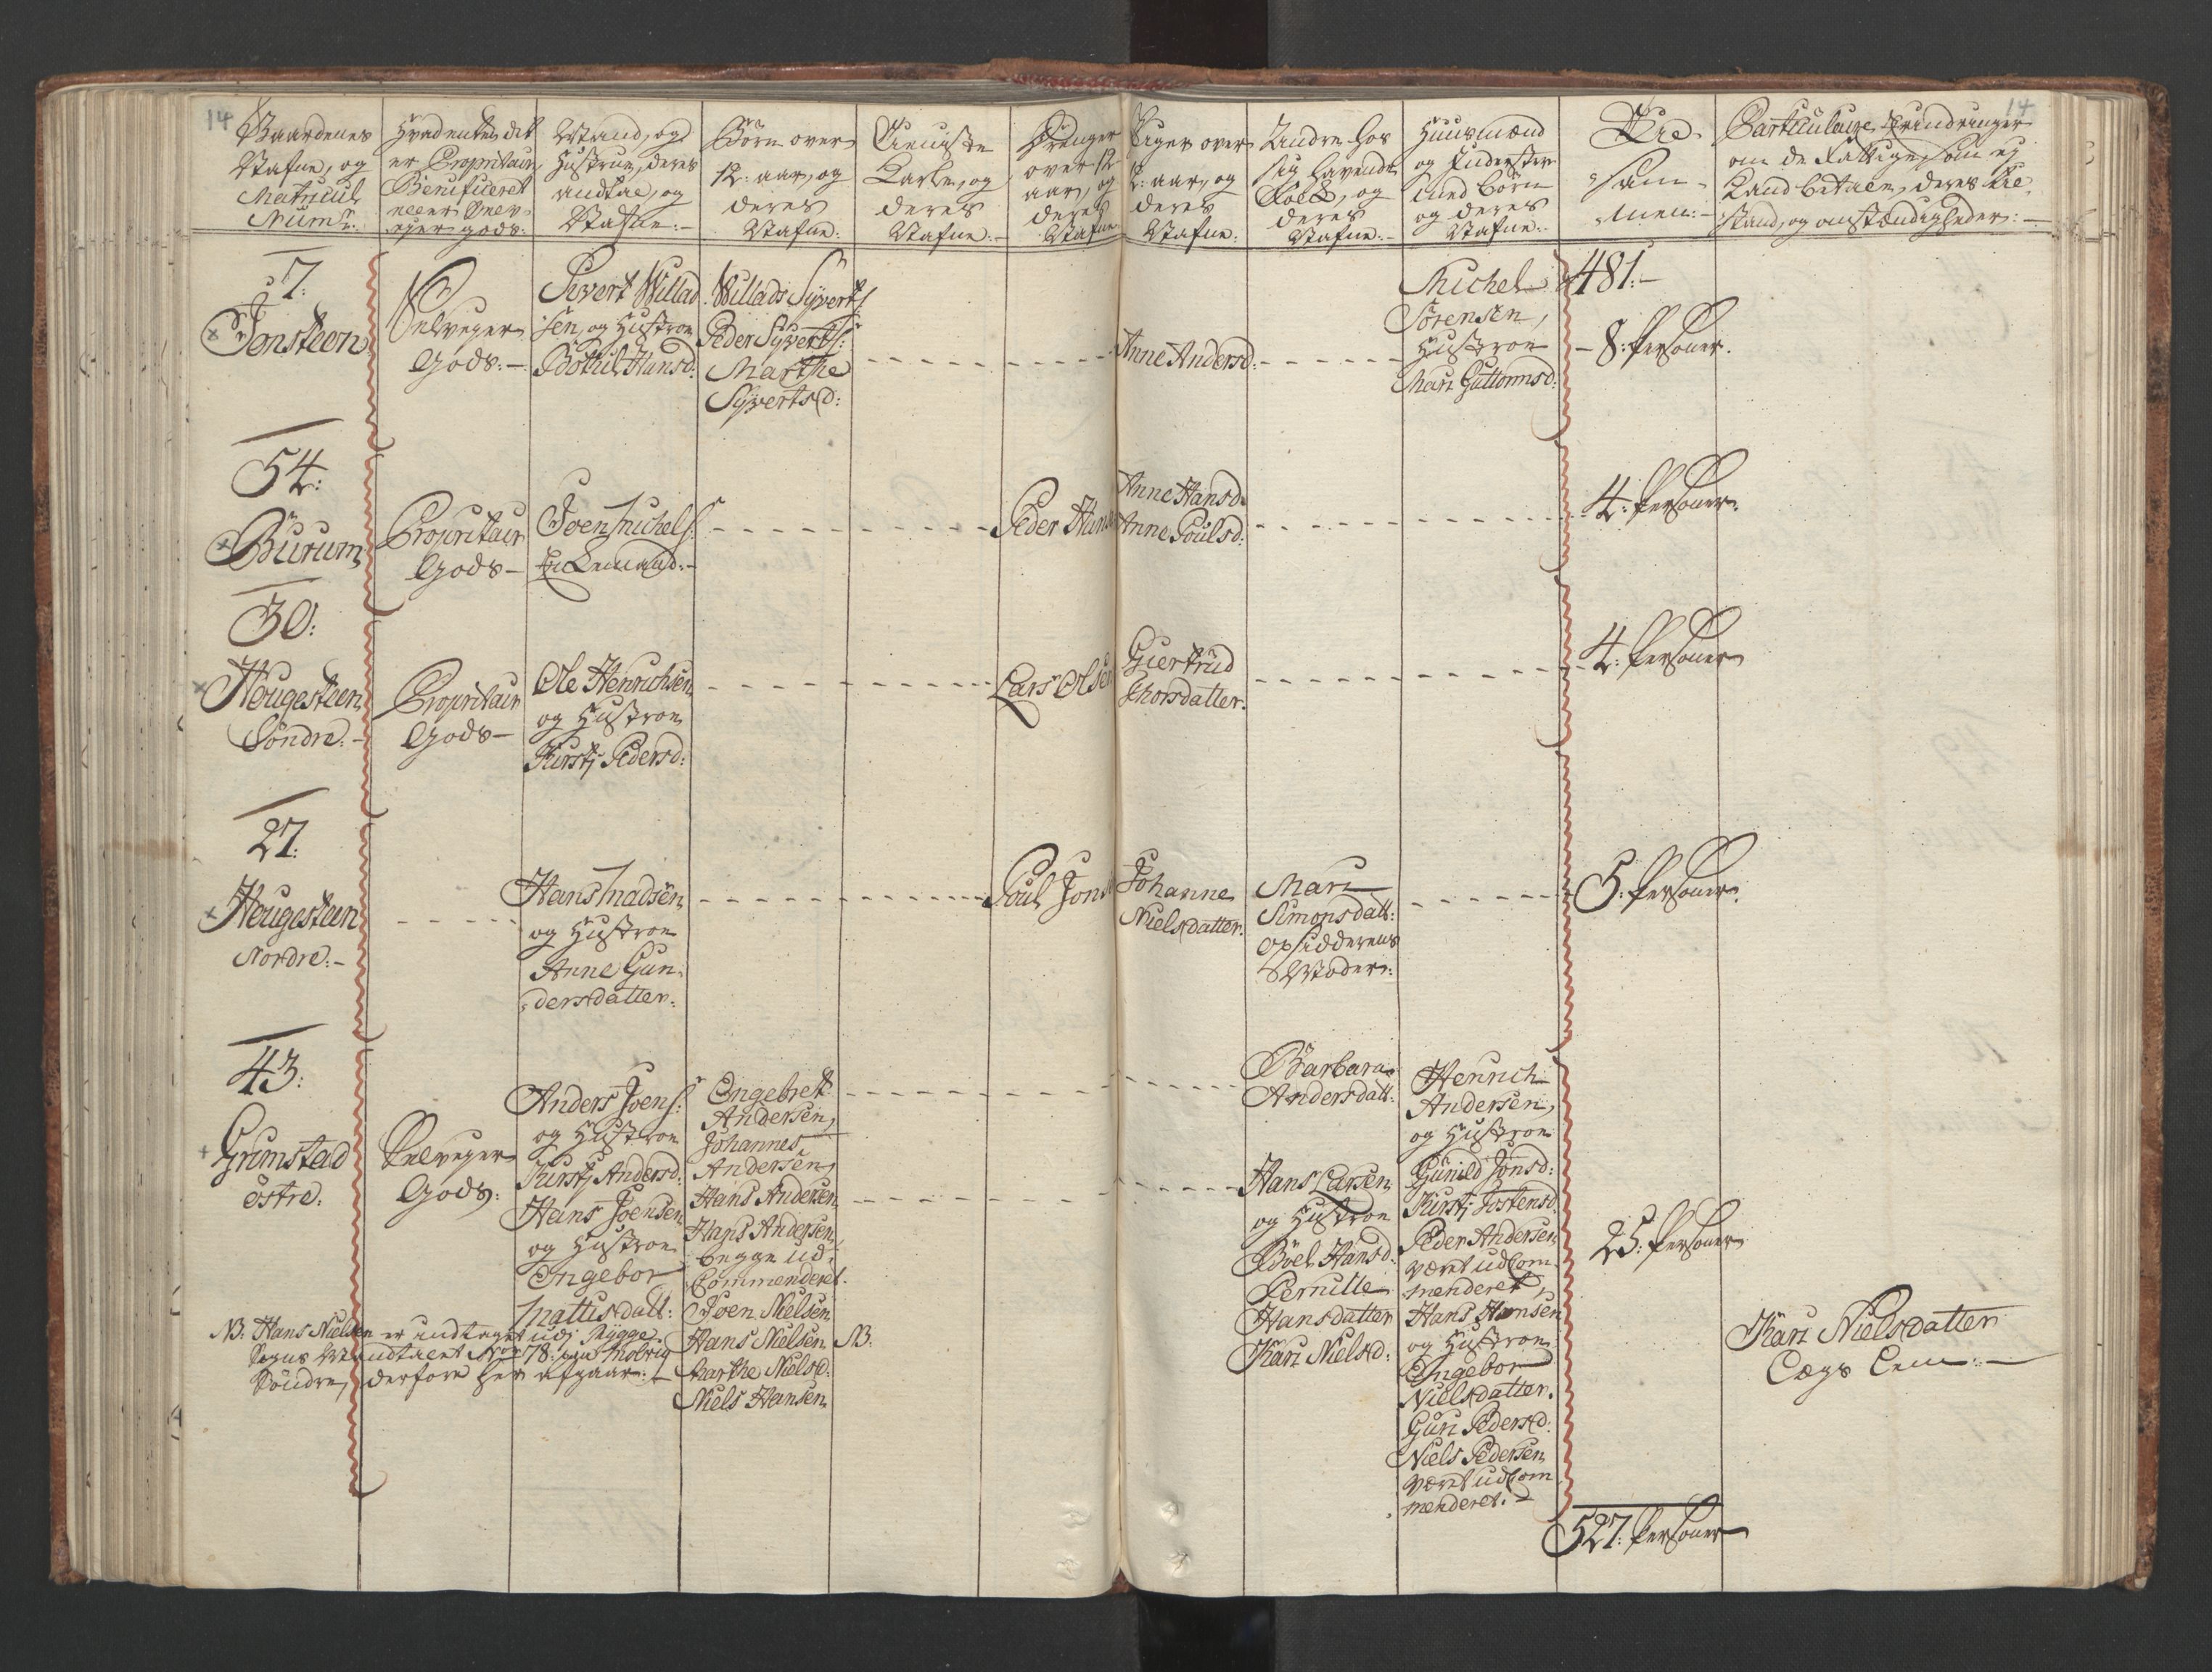 14
Gaardenes
Nafne, og
Matricul
Num:
Hvad enten det
er Propritair
Benificeret
eller Selv-
eyer gods:
Mand, og
Hustrue, deres
andtal, og
Nafne:-
Børn over
12: aar, og
deres
Nafne:
Tieniste
Karle, og
deres
Nafne:-
Drenger
over 12
aar, og
deres
Nafne
Piger over
12: aar, og
deres
Nafne:
Andre hos
sig havende
Folk, og
deres
Nafne:-
Huusmænd
og Inderster
med børn
og deres
Nafne:-
Tilsam-
men:-
14
Particulaire Erindringer
om de Fattige, som ej
Kand betale, deres til-
stand, og omstændigheder:-
7:
Jonsteen
Selveyer
Gods:-
Sivert Willad
sen, og Hustroe
Bothil Hansd:
Willads Syverts:
Peder Syverts:
Marthe
Syvertsd:
Anne Andersd:
Michel
Sörensen,
Hustroe
Mari Guttormsd:
481:-
8: Personer.
54:
Burum
Propritair
Gods-
Joen Michels:
En Lemand:-
Peder Hans
Anne Hansd:
Anne Poulsd:
4: Personer.
30:
Heugesteen
Söndre:-
Propritair
Gods-
Ole Henrichsen
og Hustroe
Kirstj Pedersd:
Lars Olsen
Giertrud
Thorsdatter.
4: Personer
27:
Heugesteen
Nordre:-
Hans Madsen
og Hustroe
Anne Gun-
dersdatter:
Poul Jons
Johanne
Nielsdatter.
Mari
Simonsdatt:
Opsidderens
Moder:
5: Personer:
43:
Grimstad
östre:
Selveyer
Gods:
Anders Joens:
og Hustroe
Kirstj Andersd:
Hans Joensen
og Hustroe
Ingebor
Mattisdatt:
Engebret
Andersen,
Johannes
Andersen,
Hans Andersen
Hans Andersen
begge ud-
Commenderet.
Joen Nielsen
Hans Nielsen NB:
Marthe Nielsd:
Niels Hansen
Barbara
Andersdatt:
Hans Larsen
og Hustroe
Boel Hansd:
Pernille
Hansdatter
Kari Nielsd:
Henrich
Andersen,
og Hustroe
Gunild Jonsd:
Kirstj Tostensd.
Peder Andersen
været udCom-
menderet,
Hans Hansen
og Hustroe
Ingebor
Nielsdatter.
Guri Pedersd:
Niels Pedersen
været udCom
menderet:-
25: Personer
Kari Nielsdatter
Lægs Lem:-
NB: Hans Nielsen er indtaget udj Rygge
Sogns Mandtael No 78: paa Mobrig
Söndre, derfore her afgaar:-
527: Personer